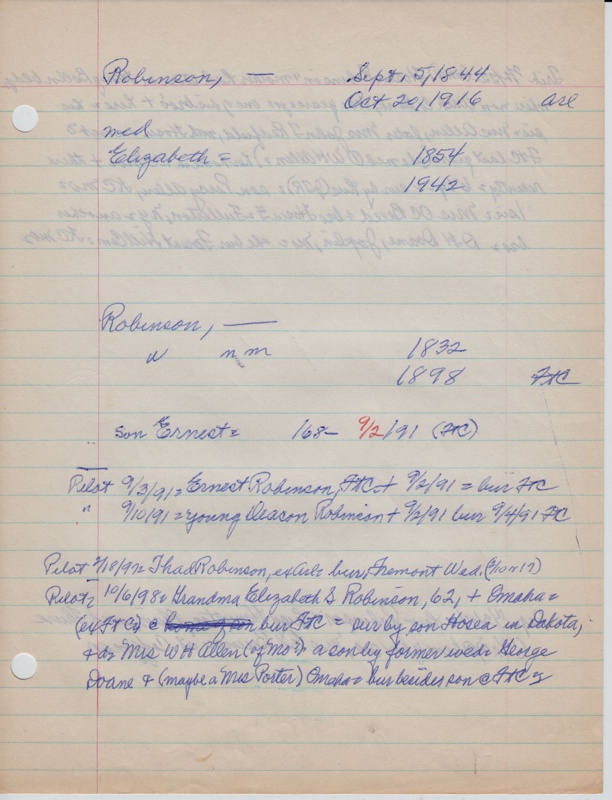 Robinson, — Sept. 5, 1844
Oct 20, 1916 are
med
Elizabeth = 1854
1942
Robinson, —
" n m 1832
1898 FtC
son Ernest = 168– 9/2/91 (FtC)
Pilot 9/3/91 = Ernest Robinson, FtC + 9/2/91 = bur FtC
" 9/10/91 = young Deacon Robinson + 9/2/91 bur 9/4/91 FC
Pilot 2/18/92 = Thad Robinson, ex bur, Fremont Wed.
Pilot = 10/6/98 = Grandma Elizabeth S Robinson, 62, + Omaha =
(ex FtC) c bur FtC = sur by son Hosea in Dakota,
+ da Mrs W H Allen (of Mo?) a son by former wed = George
Doane + (maybe a Mrs Porter) Omaha = bur besides son @ FtC